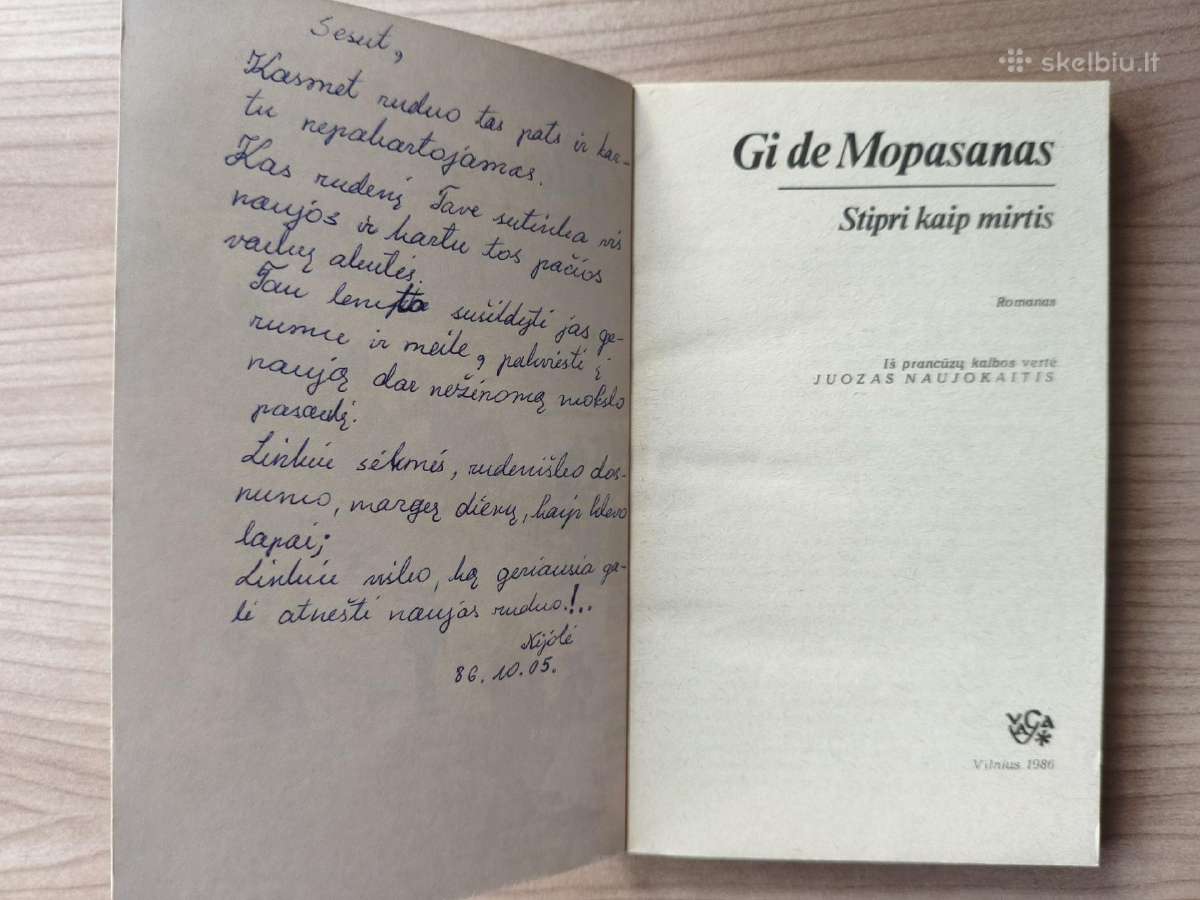 Sesut,
Kasmet ruduo tas pats ir kar-
tu nepakartojamas.
Kas rudenį Tave sutinka vis
naujos ir kartu tos pačios
vaikų akutės.
Tau lemta sušildyti jas ge-
rumu ir meile, pakviesti į
naują dar nežinomą mokslo
pasaulį.
Linkiu sėkmės, rudeniško dos-
numo, margų dienų, kaip klevo
lapai;
Linkiu visko, ką geriausia ga-
li atnešti naujas ruduo!..
Nijolė
86.10.05.
skelbiu.lt
Gi de Mopasanas
Stipri kaip mirtis
Romanas
Iš prancūzų kalbos vertė
JUOZAS NAUJOKAITIS
VAGA
Vilnius 1986